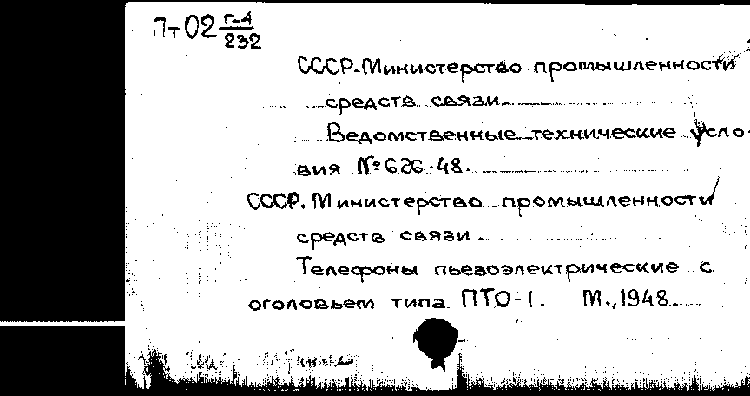 Пт02 Г-4
232
СССР. Министерство промышленности
средств связи.
Ведомственные технические усло-
вия №626-48.
СССР. Министерство промышленности
средств связи.
Телефоны пьезоэлектрические с
оголовьем типа ПТО-1. М., 1948.